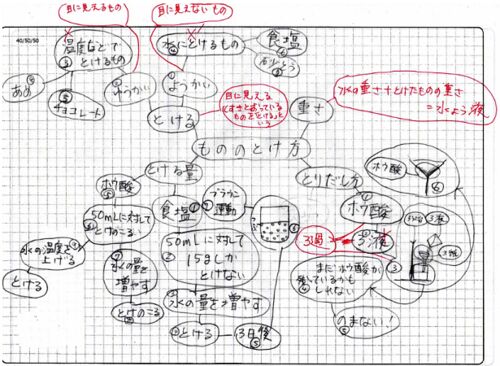 目に見えるもの
目に見えないもの
40/50/50
温度などで
とけるもの
水にとけるもの
食塩
さとう
あめ
チョコレート
ゆうかい
ようかい
とける
目に見える
ものをとける」と
いう
重さ
水の重さ+とけたものの重さ
=水よう液
もののとけ方
とける量
とりだし方
ホウ酸
食塩
ブラウン
運動
ホウ酸
ホウ酸
50mLに対して
とけのこる
50mLに対して
15gしか
とけない
3過
3液
水の温度を
上げる
水の量を
増やす
水の量を増やす
まだホウ酸が
残っているかも
しれない
とける
とけのこる
とける
3日後
のまない!